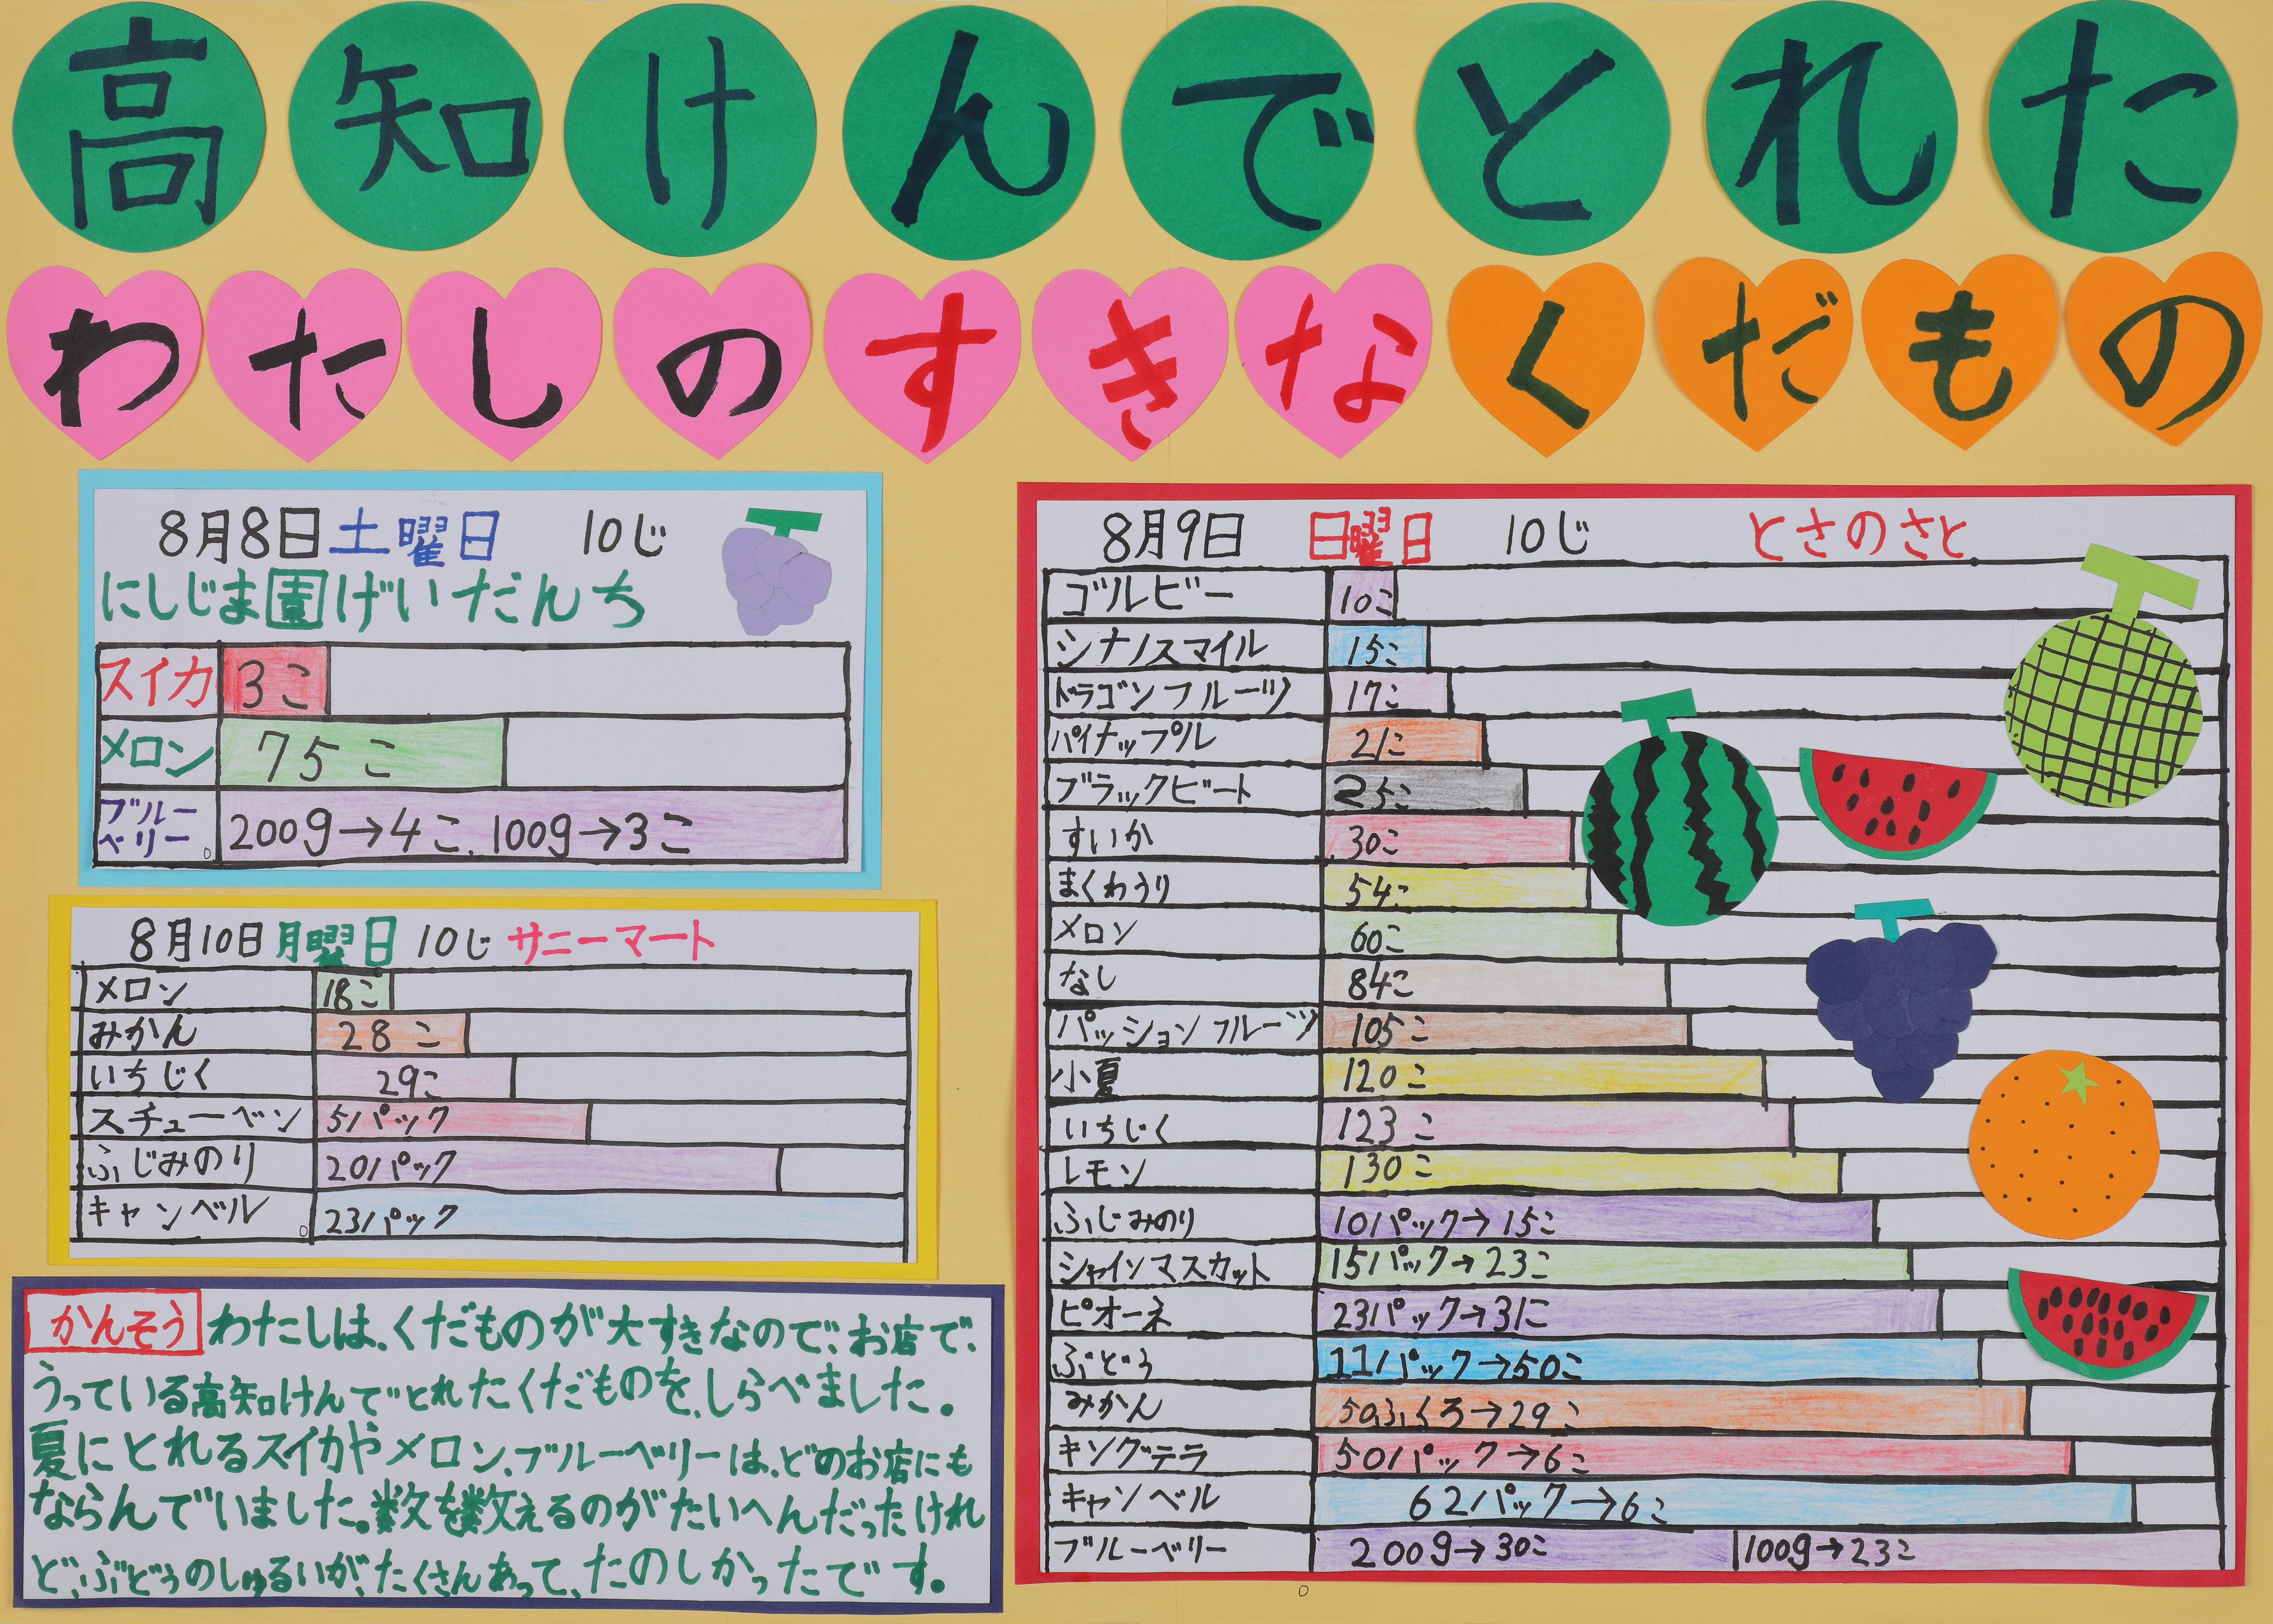 高知けんでとれた
わたしのすきなくだもの
8月8日土曜日 10じ
にしじま園げいだんち
スイカ 3こ
メロン 75こ
ブルーベリー 200g→4こ、100g→3こ
8月10日月曜日 10じ サニーマート
メロン 18こ
みかん 28こ
いちじく 29こ
スチューベン 5パック
ふじみのり 20パック
キャンベル 23パック
かんそう わたしは、くだものが大すきなので、お店で、
うっている高知けんでとれたくだものを、しらべました。
夏にとれるスイカやメロン、ブルーベリーは、どのお店にも
ならんでいました。数を数えるのがたいへんだったけれ
ど、ぶどうのしゅるいが、たくさんあって、たのしかったです。
8月9日 日曜日 10じ とさのさと
ゴルビー 10こ
シナノスマイル 15こ
ドラゴンフルーツ 17こ
パイナップル 21こ
ブラックビート 25こ
すいか 30こ
まくわうり 54こ
メロン 60こ
なし 84こ
パッションフルーツ 105こ
小夏 120こ
いちじく 123こ
レモン 130こ
ふじみのり 10パック→15こ
シャインマスカット 15パック→23こ
ピオーネ 23パック→31こ
ぶどう 11パック→50こ
みかん 50ふくろ→29こ
キングデラ 50パック→6こ
キャンベル 62パック→6こ
ブルーベリー 200g→30こ 100g→23こ